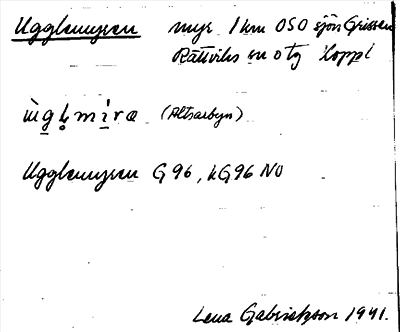 Ugglemyren myr 1 km OSO sjön Grissen
Rättviks sn o tg Koppl
ùg̱ḷmi̱ra (Altsarbyn)
Ugglemyren G96, kG96 NO
Lena Gabrielsson 1941.